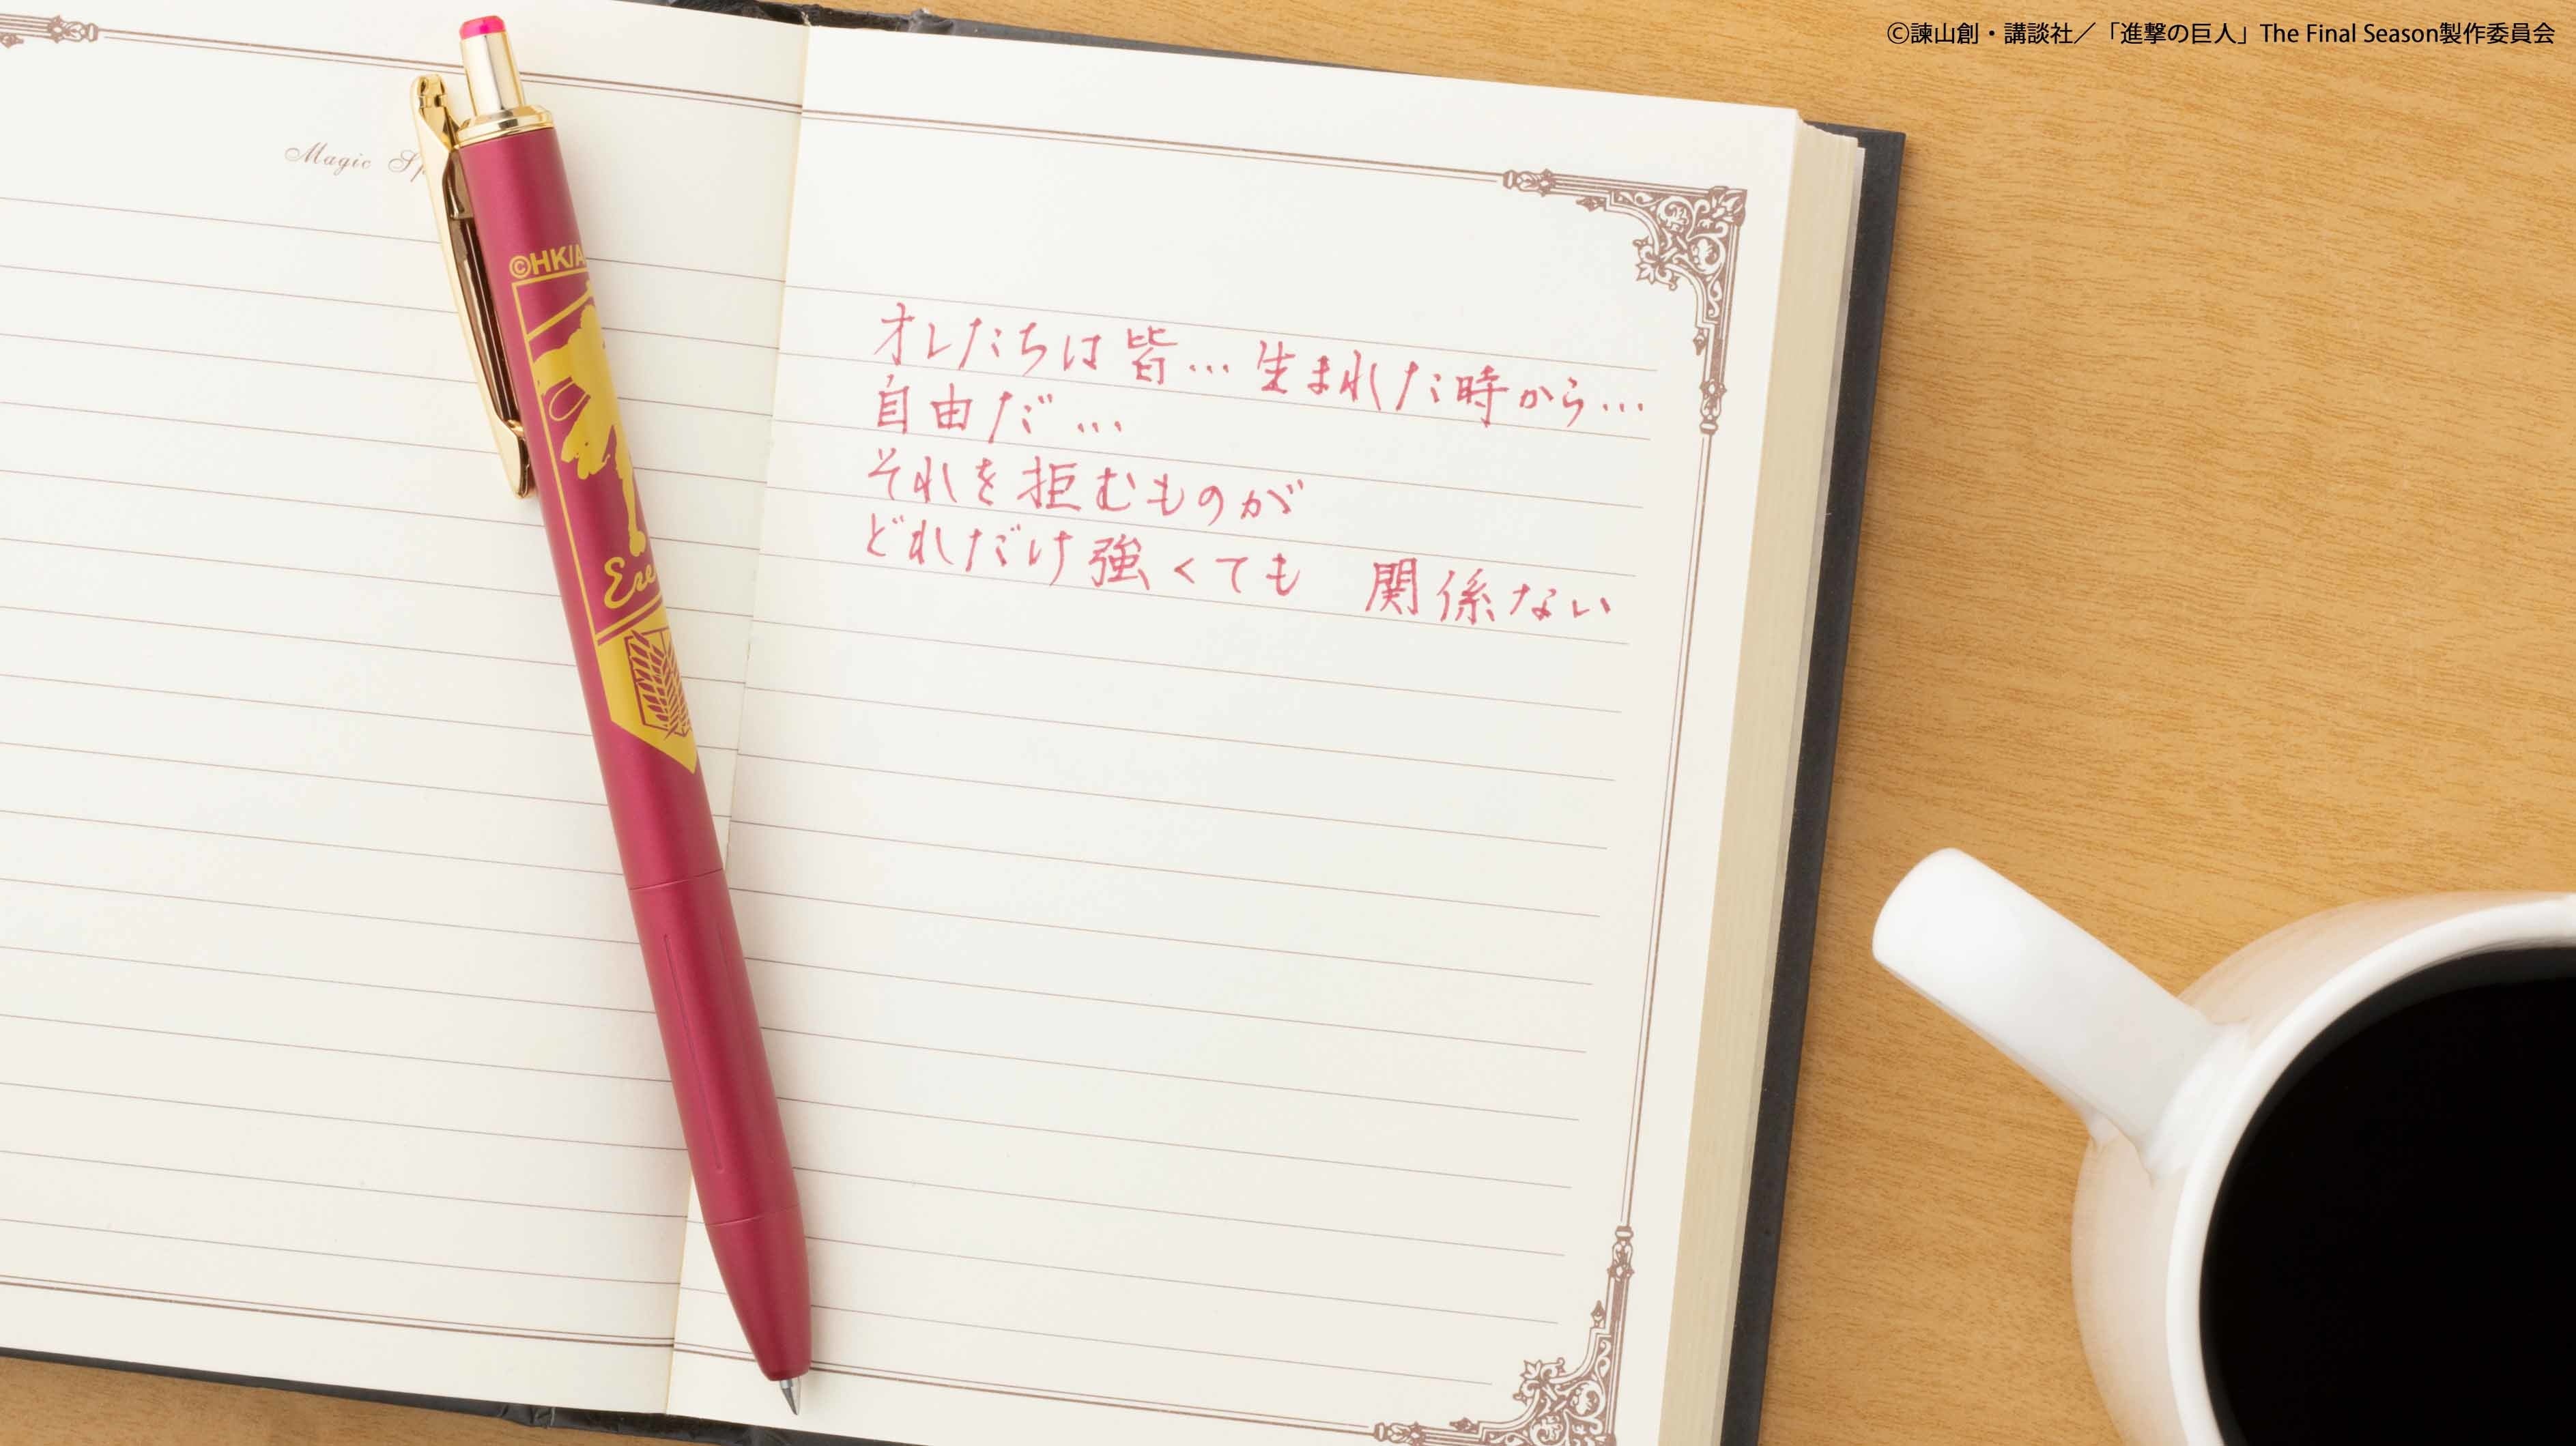 ©諫山創・講談社／「進撃の巨人」The Final Season製作委員会
Magic
©HK/A
オレたちは皆…生まれた時から…
自由だ…
それを拒むものが
どれだけ強くても 関係ない